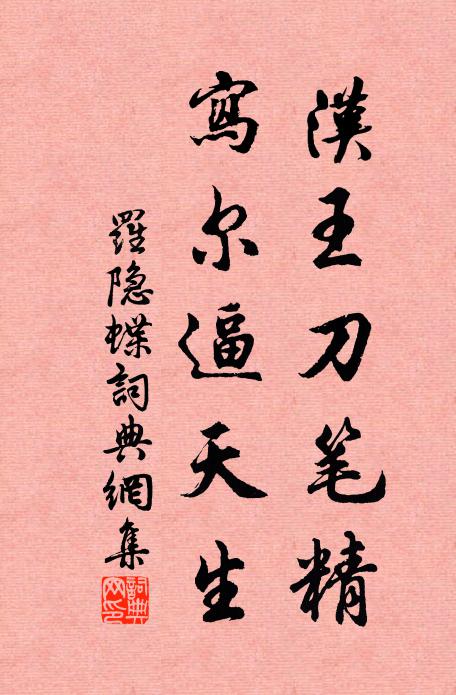 漢王刀笔精
寫尔逼天生
羅隐蝶詞典網集
詞典网印